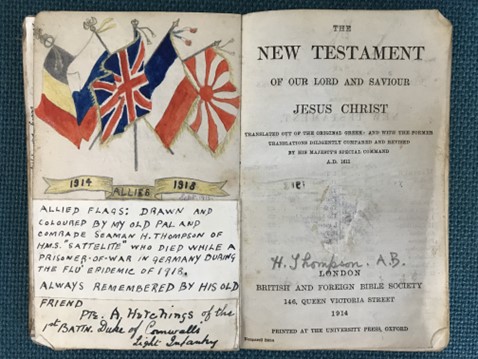 1914 ALLIES 1918
ALLIED FLAGS: DRAWN AND
COLOURED BY MY OLD PAL AND
COMRADE SEAMAN H. THOMPSON OF
HMS. "SATTELITE" WHO DIED WHILE A
PRISONER-OF-WAR IN GERMANY DURING
THE FLU' EPIDEMIC OF 1918.
ALWAYS REMEMBERED BY HIS OLD
FRIEND
PTE. A, HOTCHINGS of the
1st BATTN. Duke of Cornwalls
Light Infantry
THE
NEW TESTAMENT
OF OUR LORD AND SAVIOUR
JESUS CHRIST
TRANSLATED OUT OF THE ORIGINAL GREEK: AND WITH THE FORMER
TRANSLATIONS DILIGENTLY COMPARED AND REVISED
BY HIS MAJESTY'S SPECIAL COMMAND
A.D. 1611
H. Thompson. A.B.
LONDON
BRITISH AND FOREIGN BIBLE SOCIETY
146, QUEEN VICTORIA STREET
1914
PRINTED AT THE UNIVERSITY PRESS, OXFORD